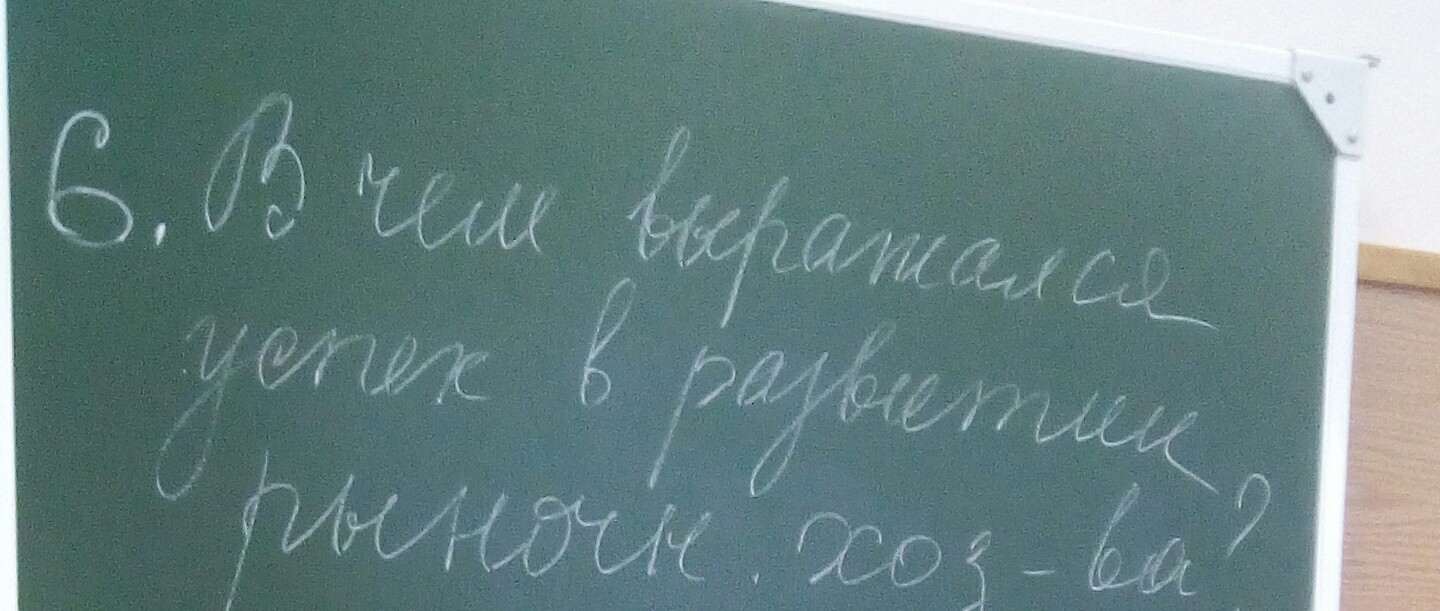 6. В чем выражался
успех в развитии
рыночн. хоз-ва?